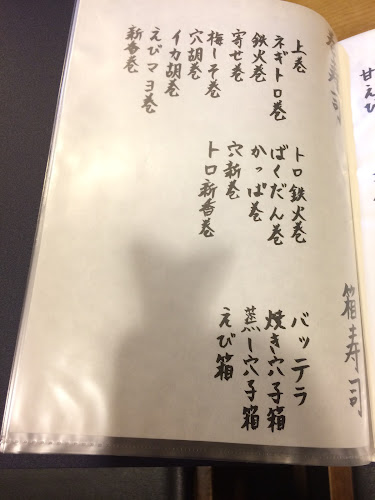 巻寿司
上巻
ネギトロ巻
鉄火巻
寄せ巻
梅しそ巻
穴胡巻
イカ胡巻
えびマヨ巻
新香巻
トロ鉄火巻
ばくだん巻
かっぱ巻
穴新巻
トロ新香巻
箱寿司
バッテラ
焼き穴子箱
蒸し穴子箱
えび箱
甘えび